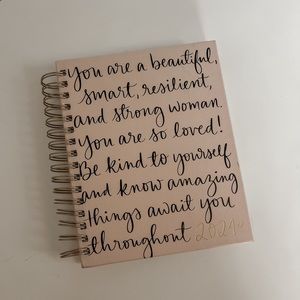 You are a beautiful,
smart, resilient,
and strong woman.
You are so loved!
Be kind to yourself
and know amazing
things await you
throughout 2021